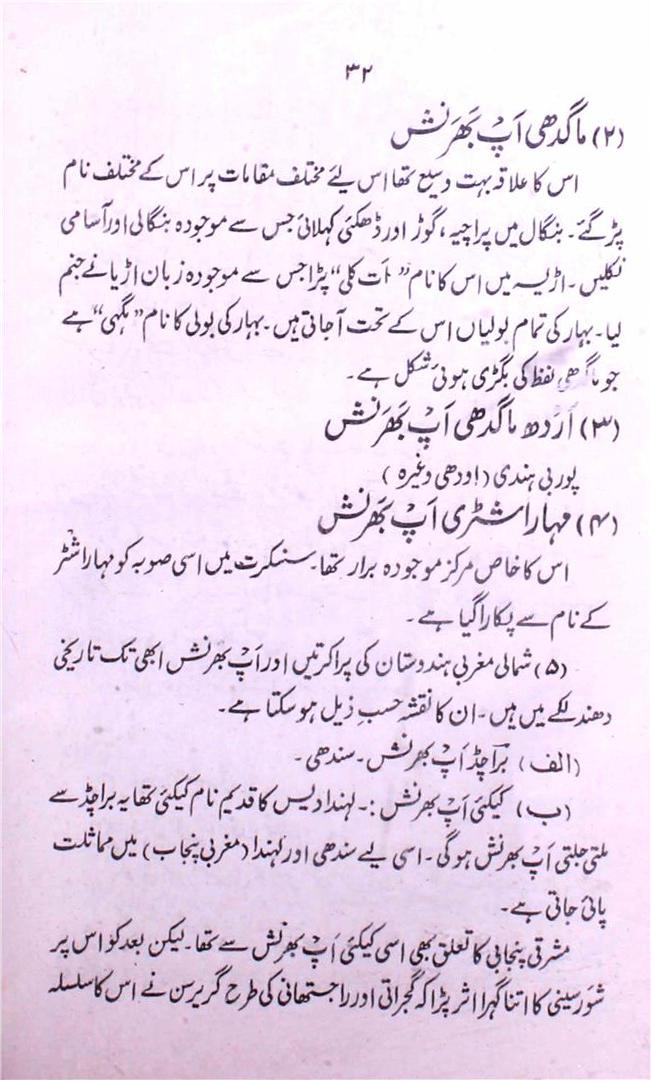 ۳۲
(۲) ماگدھی اَپ بَھرَنش
اس کا علاقہ بہت وسیع تھا اس لئے مختلف مقامات پر اس کے مختلف نام
پڑ گئے۔ بنگال میں پراچیہ، گوڑ اور ڈھکئی کہلائی جس سے موجودہ بنگالی اور آسامی
نکلیں۔ اڑیسہ میں اس کا نام ”اَت کلی“ پڑا جس سے موجودہ زبان اڑیا نے جنم
لیا۔ بہار کی تمام بولیاں اس کے تحت آ جاتی ہیں۔ بہار کی بولی کا نام ”مگہی“ ہے
جو ماگدھی لفظ کی بگڑی ہوئی شکل ہے۔
(۳) اَرَدھ ماگدھی اَپ بَھرَنش
پوربی ہندی (اودھی وغیرہ)
(۴) مہاراشٹری اَپ بَھرَنش
اس کا خاص مرکز موجودہ برار تھا۔ سنسکرت میں اسی صوبہ کو مہاراشٹر
کے نام سے پکارا گیا ہے۔
(۵) شمالی مغربی ہندوستان کی پراکرتیں اور اَپ بھرنش ابھی تک تاریخی
دھندلکے میں ہیں۔ ان کا نقشہ حسبِ ذیل ہو سکتا ہے۔
(الف) براَچڈ اَپ بھرنش۔ سندھی۔
(ب) کیکئی اَپ بھرنش :۔ لہندا دیس کا قدیم نام کیکئی تھا یہ براچڈ سے
ملتی جلتی اَپ بھرنش ہو گی۔ اسی لیے سندھی اور لہندا (مغربی پنجاب) میں مماثلت
پائی جاتی ہے۔
مشرقی پنجابی کا تعلق بھی اسی کیکئی اَپ بھرنش سے تھا۔ لیکن بعد کو اس پر
شَورسینی کا اتنا گہرا اثر پڑا کہ گجراتی اور راجستھانی کی طرح گریرسن نے اس کا سلسلہ